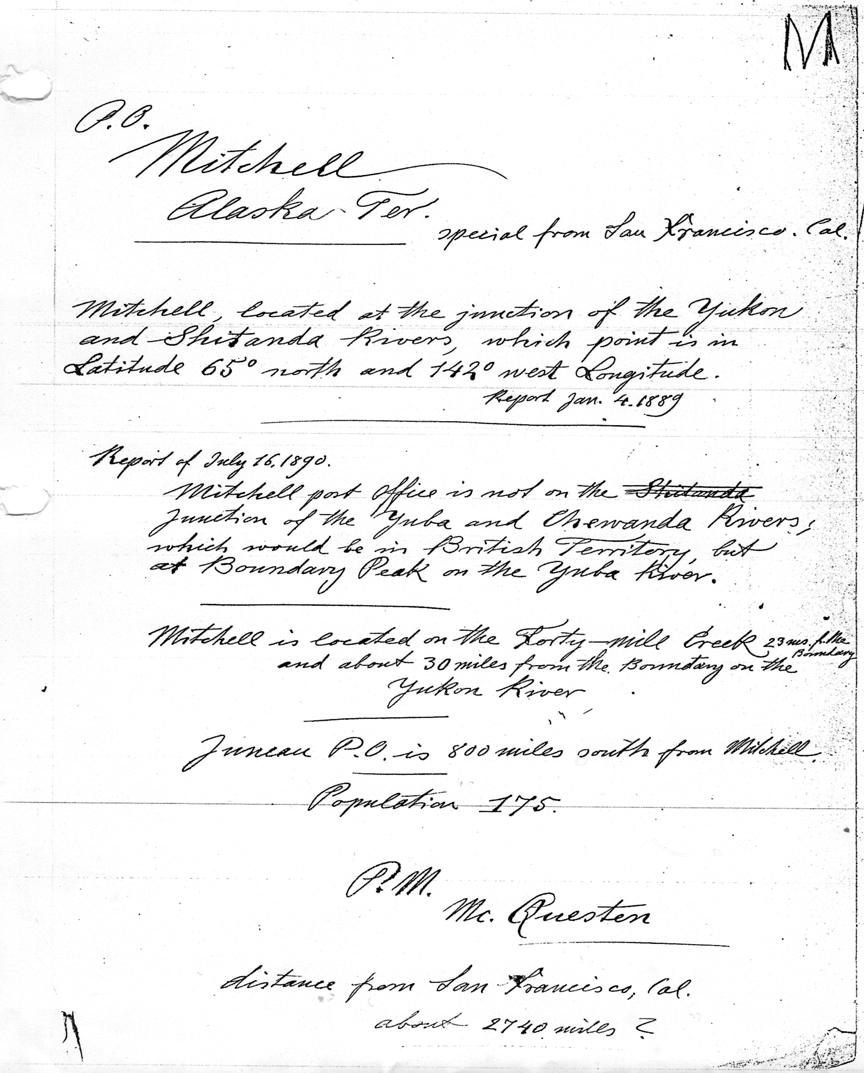 M
P.O.
Mitchell
Alaska Ter.
special from San Francisco. Cal.
Mitchell, located at the junction of the Yukon
and Shitanda Rivers, which point is in
Latitude 65° north and 142° west Longitude.
Report Jan. 4. 1889
Report of July 16, 1890.
Mitchell post office is not on the Shitanda
Junction of the Yuba and Chewanda Rivers,
which would be in British Territory, but
at Boundary Peak on the Yuba River.
Mitchell is located on the Forty-mill Creek 23 ms. f. the
Boundary
and about 30 miles from the Boundary on the
Yukon River
Juneau P.O. is 800 miles south from Mitchell.
Population 175.
P.M.
Mc. Questen
distance from San Francisco, Cal.
about 2740 miles ?